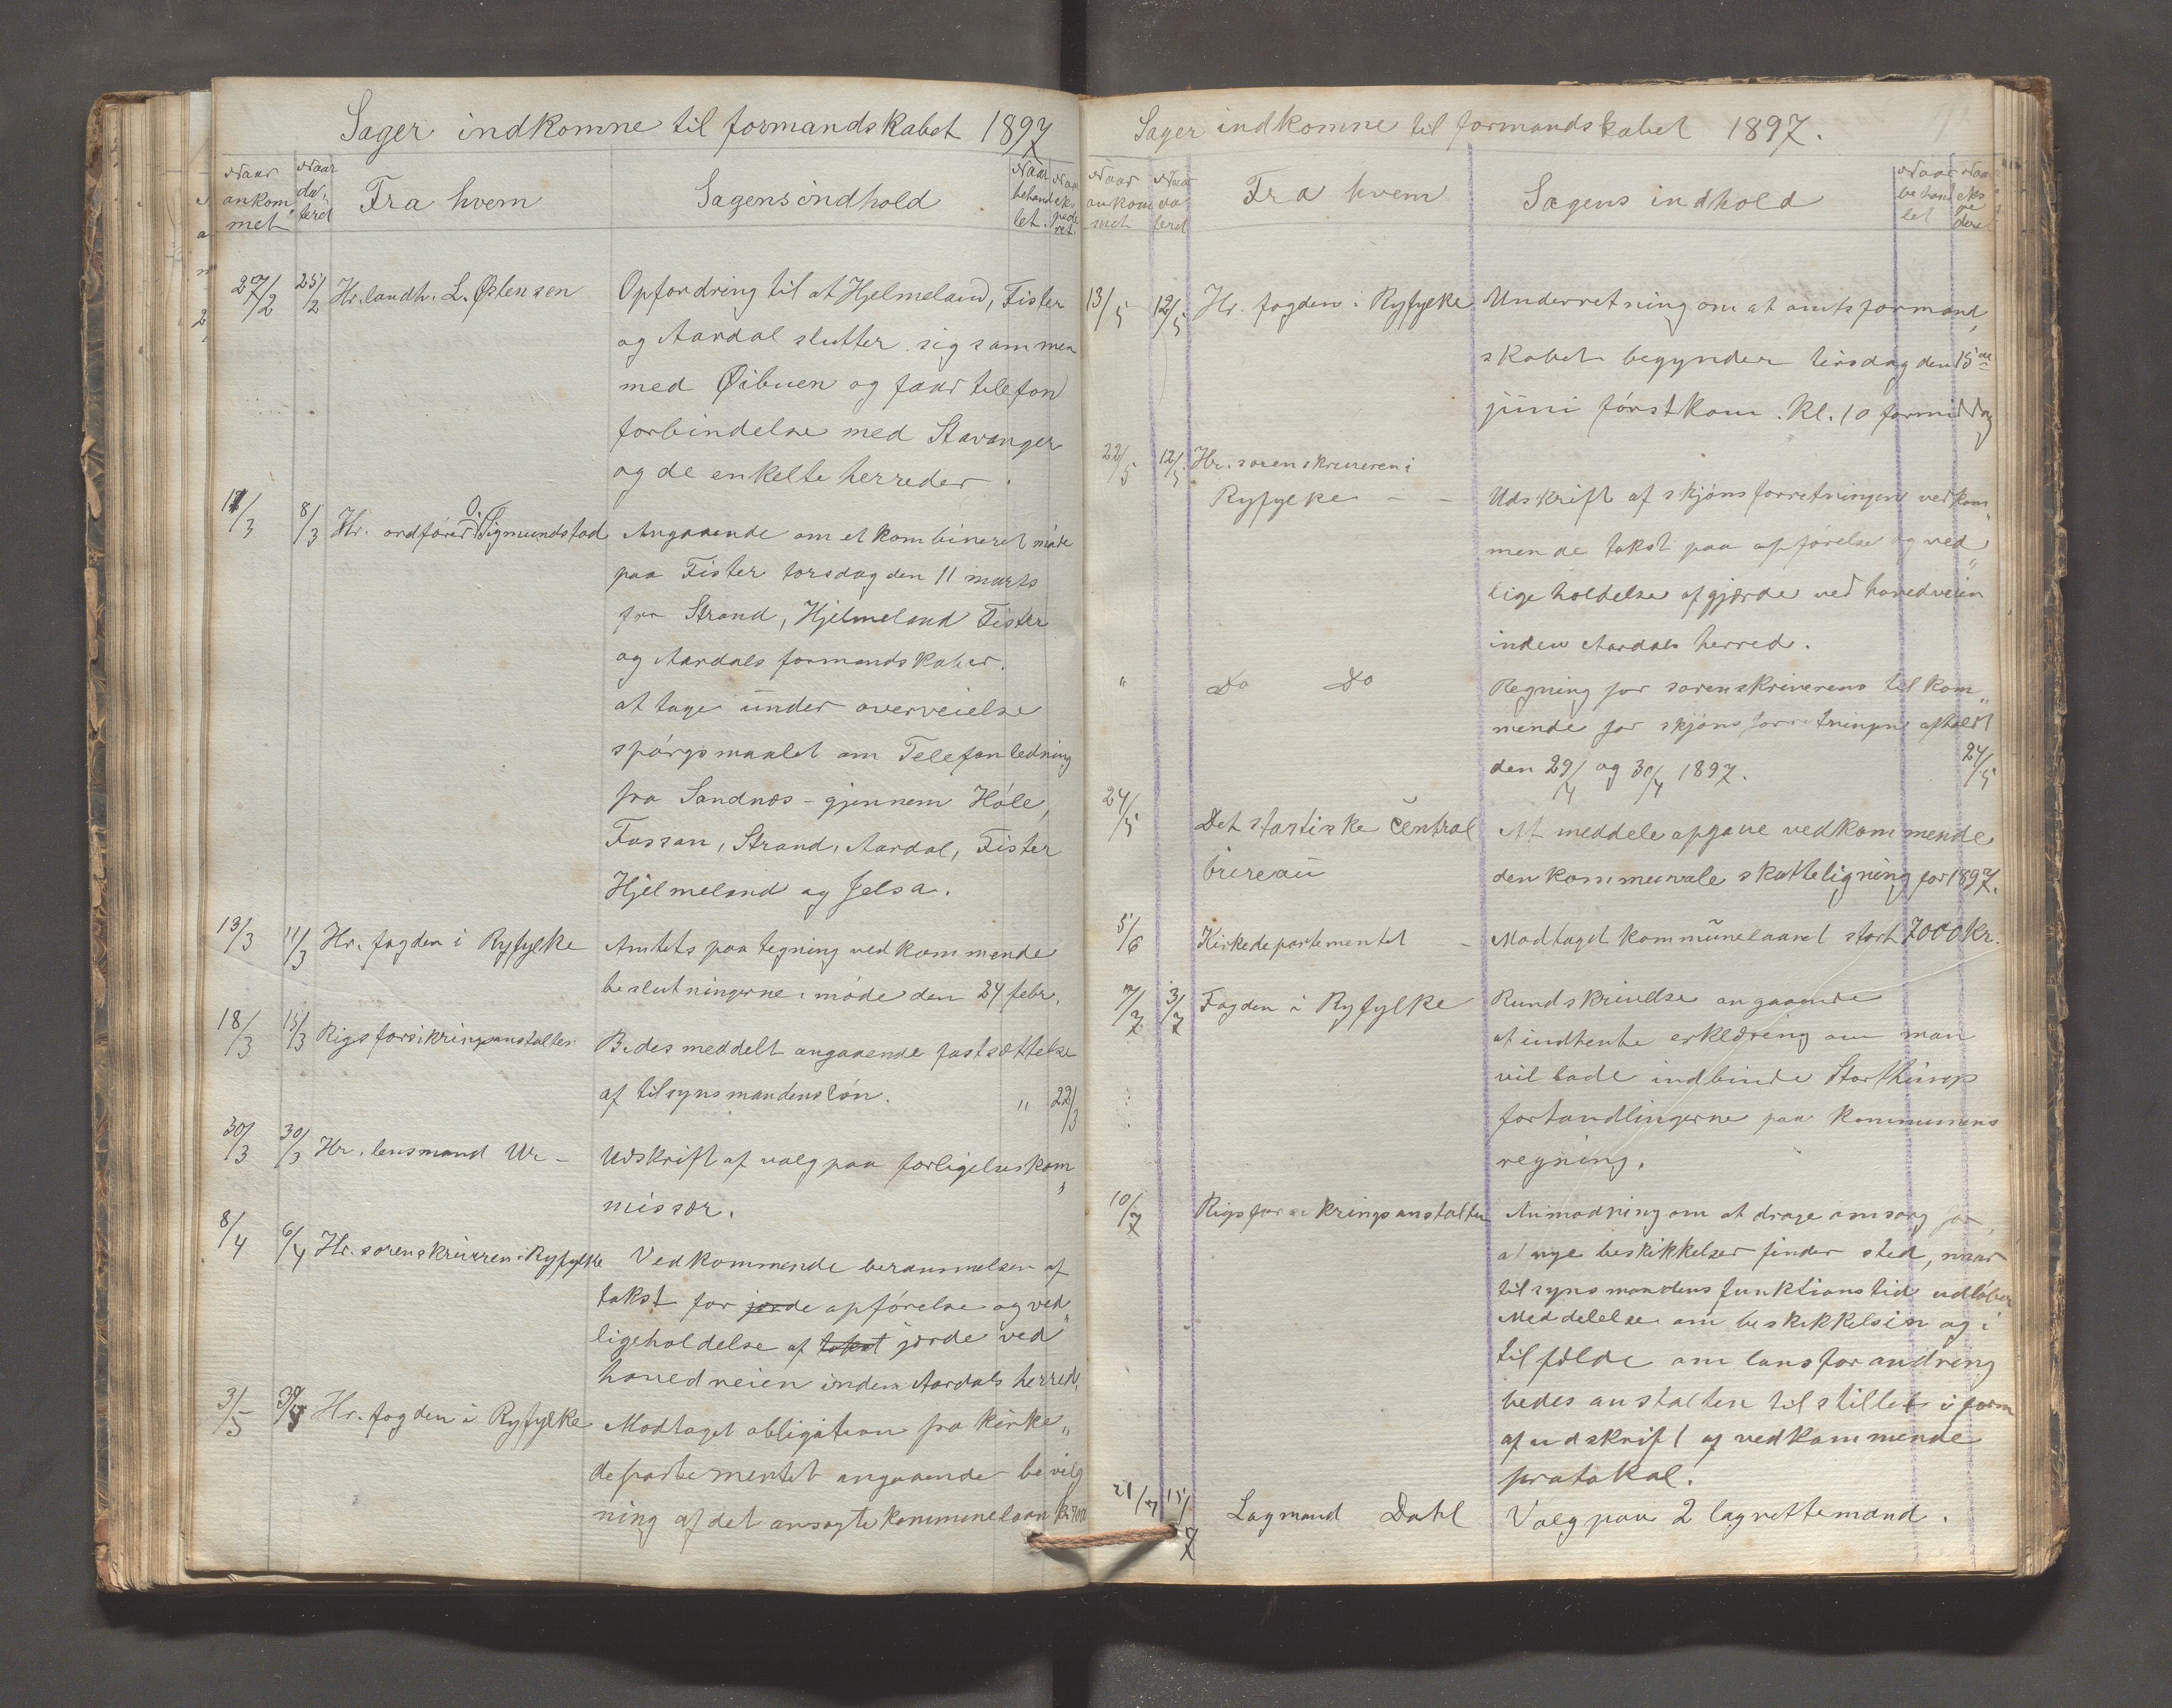 Sager indkomne til formandskabet 1897
Naar ankom met
Naar da- terd
Fra hvem
Sagens indhold
Naar behand let.
Naar eks pede ret.
27/2 25/2 Hr. landh. L. Østensen Opfordring til at Hjelmeland, Fister
og Aardal slutter sig sammen
med Øibuen og faar telefon
forbindelse med Stavanger
og de enkelte herreder.
11/3 8/3 Hr. ordfører O. Sigmundstad Angaaende om et kombineret møde
paa Fister torsdag den 11 marts
fra Strand, Hjelmeland Fister
og Aardals formandskaber.
at tage under overveielse
spørgsmaalet om Telefonledning
fra Sandnæs - gjennem Høle,
Fossan, Strand, Aardal, Fister
Hjelmeland og Jelsa.
13/3 11/3 Hr. fogden i Ryfylke Amtets paategning vedkommende
beslutningerne i møde den 24 febr.
18/3 15/3 Rigsforsikringsanstalten Bedes meddelt angaaende fastsættelse
af tilsynsmandens løn. " 22/3
30/3 30/3 Hr. lensmand Ur - Udskrift af valg paa forligelseskom"
missær.
8/4 6/4 Hr. sorenskriveren i Ryfylke Vedkommende berammelsen af
takst for jorde opførelse og ved"
ligeholdelse af takst jorde ved
hovedveien inden Aardals herred.
3/5 Hr. fogden i Ryfylke Modtaget obligation fra kirke"
departementet angaaende bevilg
ning af det ansøgte kommunelaan
Sager indkomne til formandskabet 1897.
Naar ankom met
Naar da terd
Fra hvem
Sagens indhold
Naar behand let
Naar eks pe deret
13/5 12/5 Hr. fogden i Ryfylke Underretning om at amtsformand"
skabet begynder tirsdag den 15de
juni førstkom. Kl. 10 formiddag
22/5 12/5 Hr. sorenskriveren i
Ryfylke - - Udskrift af skjønsforretningen vedkom"
mende takst paa opførelse og ved"
ligeholdelse af gjærde ved hovedveien
inden Aardals herred.
" Do Do Regning for sorenskriverens tilkom"
mende for skjønsforretningen afholdt
den 29/4 og 30/4 1897. 24/5
24/5 Det stastiske Central At meddele opgave vedkommende
bureau den kommunale skatteligning for 1897.
5/6 Kirkedepartementet - Modtaget kommunelaanet stort 7000 Kr.
7/7 3/7 Fogden i Ryfylke Rundskrivelse angaaende
at indhente erklæring om man
vil lade indbinde Storthings
forhandlingerne paa kommunens
regning.
10/7 Rigsforsikringsanstalten Anmodning om at drage omsorg for,
at nye beskikkelser finder sted, naar
tilsynsmandens funktionstid udløber
Meddelelse om beskikkelsen og i
tilfælde om lønsforandring
bedes anstalten tilstillet i form
af udskrift af vedkommende
protokol.
21/7 15/7 Lagmand Dahl Valg paa 2 lagrettemænd.